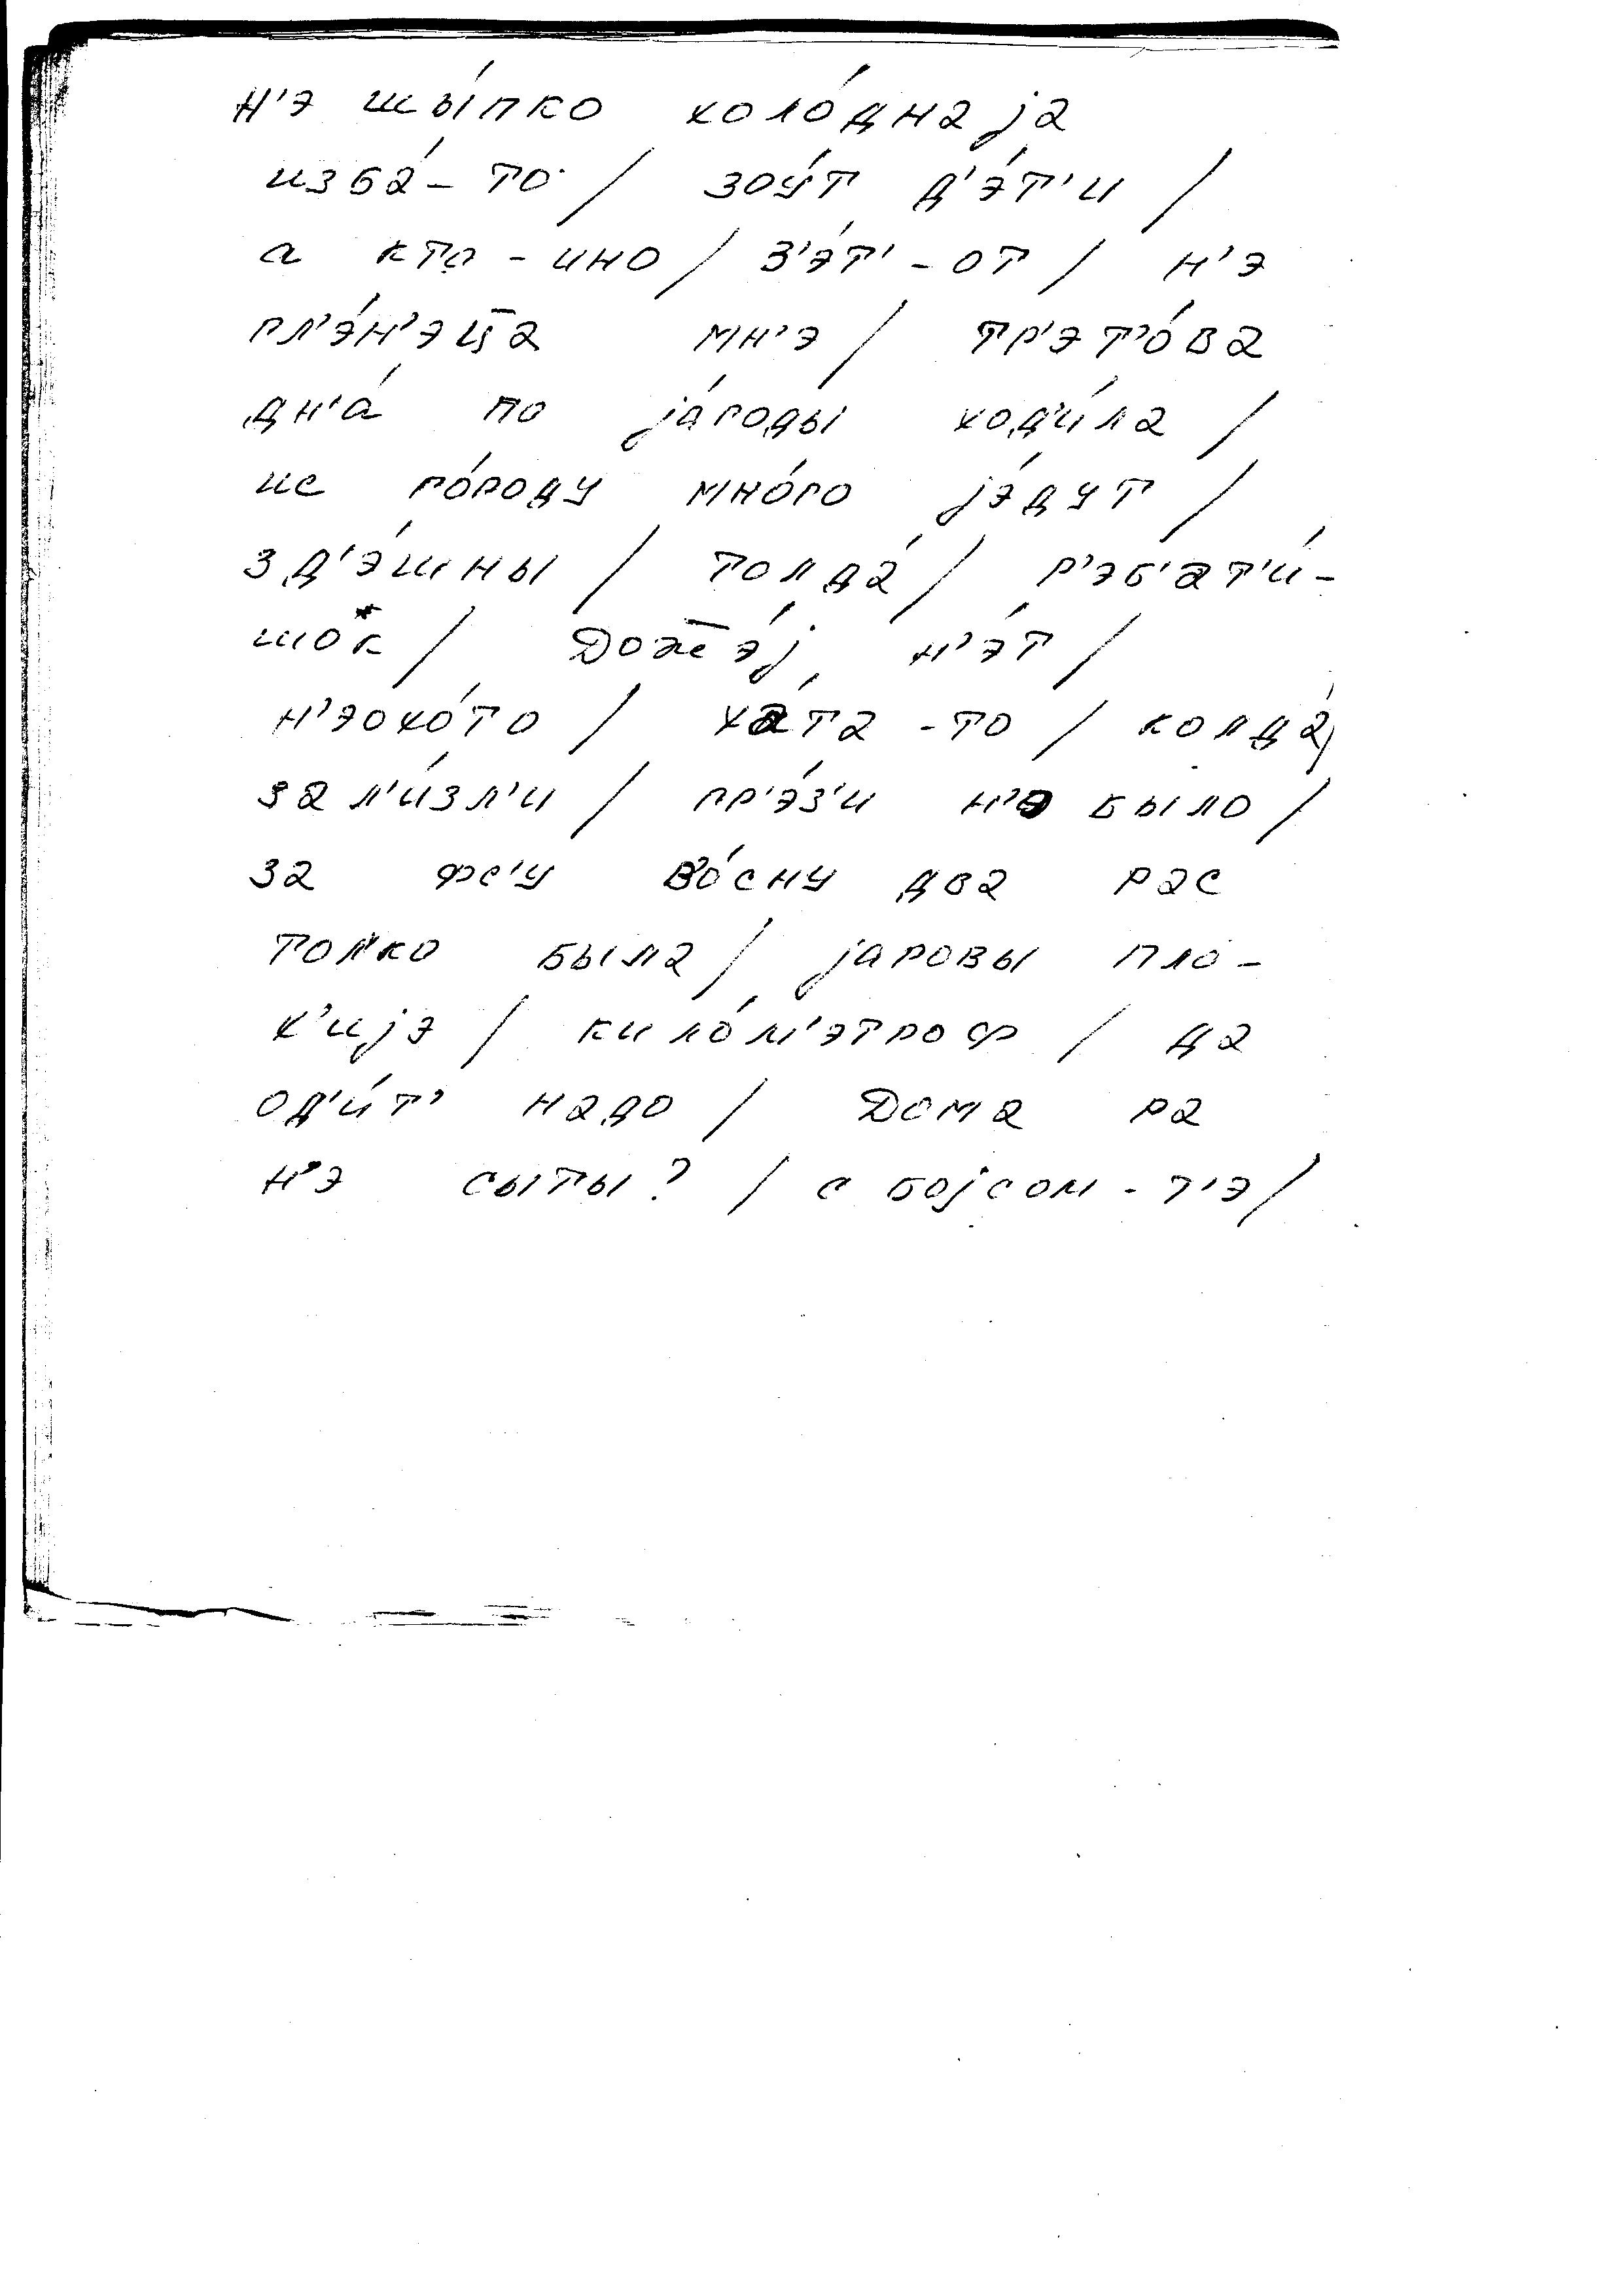 н’э шы́пко холо́дна jа
изба́-то / зоу́т д’э́т’и /
а кто-ино / з’э́т’-от / н’э
гл’э́н’э ц̄а мн’э / тр’эт’о́ва
дн’а́ по jа́годы ход’и́ла /
ис го́роду мно́го jэ́дут /
зд’э́шны / толда́ / р’эб’ат’и́-
шо*к / Дож̄э́j н’э́т /
н’эохо́то / ха́та -то / колда́
зал’и́зл’и / гр’э́з’и н’э было /
за фс’у в’о́сну два рас
тол’ко была / jаровы пло-
х’иjэ / кило́м’этроф / да
од’и́т’ надо / Дома ра
н’э сыты? / с боjсом-т’э /